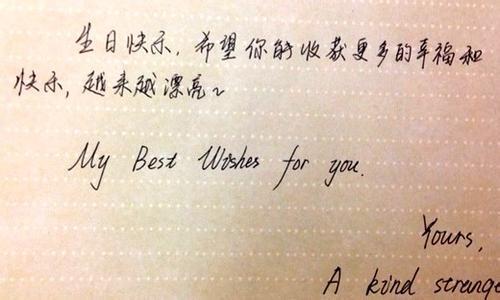 生日快乐,希望你能收获更多的幸福和
快乐,越来越漂亮~
My Best Wishes for you.
Yours,
A kind